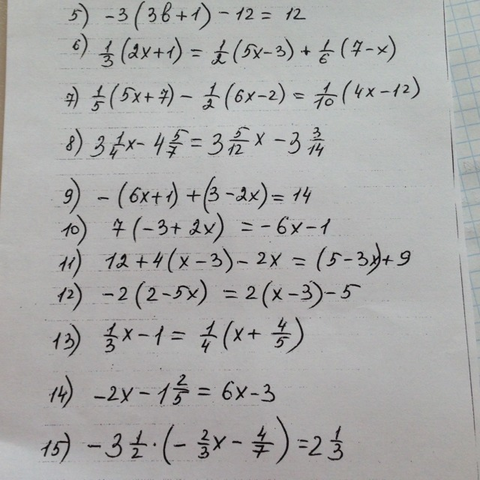 5) -3(3в+1)-12=12
6) 1/3(2x+1)=1/2(5x-3)+1/6(7-x)
7) 1/5(5x+7)-1/2(6x-2)=1/10(4x-12)
8) 3 1/4x-4 5/7=3 5/12x-3 3/14
9) -(6x+1)+(3-2x)=14
10) 7(-3+2x)=-6x-1
11) 12+4(x-3)-2x=(5-3x)+9
12) -2(2-5x)=2(x-3)-5
13) 1/3x-1=1/4(x+4/5)
14) -2x-1 2/5=6x-3
15) -3 1/2·(-2/3x-4/7)=2 1/3